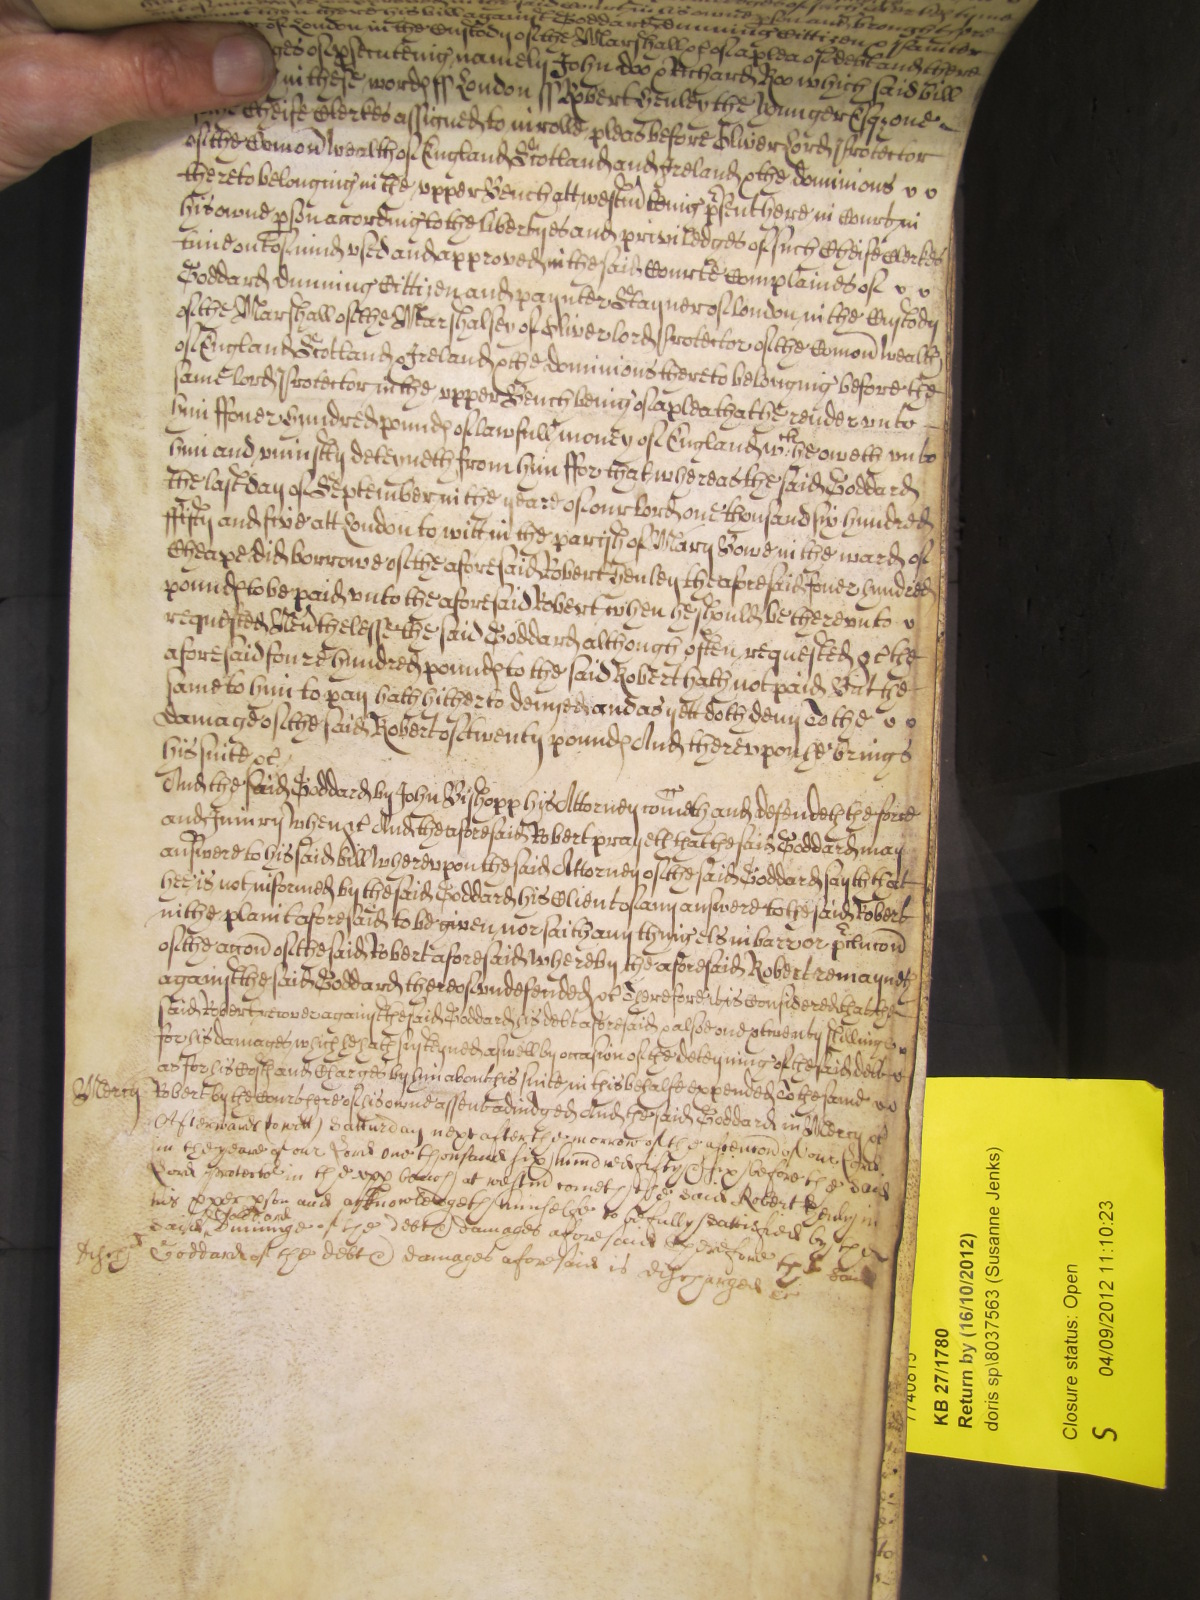 of London in the Custody of the Marshall &c of a plea of debt and there
ges of psecuteing namely John Doo & Richard Roo which said bill
in these words ss London ss Robert Henley the Younger Esqr one
Cheife Clerkes assigned to inrolle pleas before Oliver Lord Protector
of the Comon Wealth of England Scotland and Ireland & the dominions
thereto belonging in the upper Bench att Westm being psent here in Court in
his owne pson according to the libertyes and priviledges of such Cheife Clerkes
time out of mind used and approved in the said Courte Complaines of
Goddard Dunning Cittizen and paynter Stayner of London in the Custody
of the Marshall of the Marshalsey of Oliver lord Protector of the Comon Wealth
of England Scotland & Ireland & the dominions thereto belonging before the
same lord Protector in the upper Bench being of a plea that he render unto
him ffower hundred pounds of lawfull money of England wch he oweth unto
him and uniustly deteyneth from him ffor that whereas the said Goddard
the last day of September in the yeare of our lord one thousand six hundred
ffifty and five att London to witt in the parish of Mary Bowe in the ward of
Cheape did borrowe of the aforesaid Robert Henley the aforesaid fower hundred
pounds to be paid unto the aforesaid Robert when he should be thereunto
requested Nevthelesse the said Goddard although often requested &c the
aforesaid foure hundred pounds to the said Robert hath not paid But the
same to him to pay hath hitherto denyed and as yett doth deny To the
damage of the said Robert of twenty pounds And thereupon he brings
his suite &c
And the said Goddard by John Bishopp his Attorney cometh and defendeth the force
and Iniury when &c And the aforesaid Robert prayeth that the said Goddard may
answere to his said bill whereupon the said Attorney of the said Goddard sayth that
hee is not informed by the said Goddard his Client of any answere to the said Robert
in the plaint aforesaid to be given nor saith any thing els in barr or pclucon
of the accon of the said Robert aforesaid whereby the aforesaid Robert remayneth
against the said Goddard thereof undefended &c Therefore it is considered that the
said Robert recover against the said Goddard his debt aforesaid & alsoe one & twenty shillings
for his damages which he hath susteyned aswell by occasion of the deteyning of the said debt
as for his Costs and Charges by him about his suite in this behalfe expended To the same
Mercy Robert by the Court here of his owne assent adiudged And the said Goddard in Mercy &c
Afterwards to witt Satturday next after the morrow of the ascencon of our Lord
in the yeare of our Lord one thousand six hundred fifty & six before the said
Lord Protector in the upp bench at westm cometh the said Robert Henly in
his pper pson and acknowledgeth himselfe to be fully sattisfied by the
said Goddard Dunninge of the debt & damages aforesaid Therefore the said
Goddard of the debt & damages aforesaid is discharged &c
KB 27/1780
Return by (16/10/2012)
doris sp\8037563 (Susanne Jenks)
Closure status: Open
S 04/09/2012 11:10:23